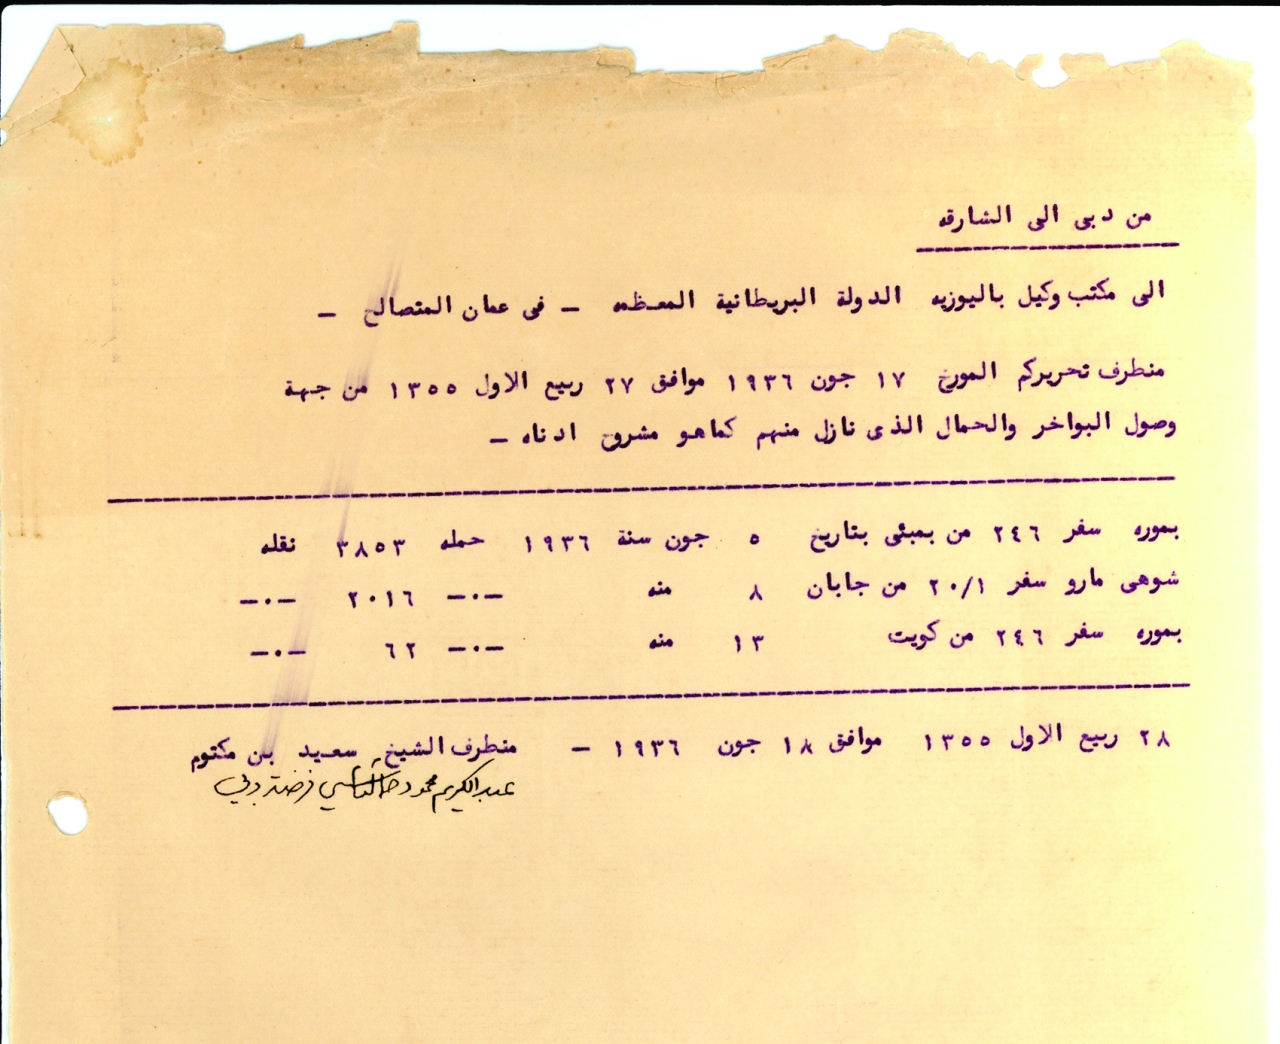 من دبى الى الشارقه
الى مكتب وكيل باليوزيه الدولة البريطانية المعظمه — فى عمان المتصالح —
منطرف تحريركم المورخ ١٧ جون ١٩٣٦ موافق ٢٧ ربيع الاول ١٣٥٥ من جهة
وصول البواخر والحمال الذى نازل منهم كماهو مشروح ادناه —
بموره سفر ٢٤٦ من بمبئى بتاريخ ٥ جون سنة ١٩٣٦ حمله ٣٨٥٣ نقله
شوهى مارو سفر ٢٠/١ من جابان ٨ منه —.— ٢٠١٦ —.—
بموره سفر ٢٤٦ من كويت ١٣ منه —.— ٦٢ —.—
٢٨ ربيع الاول ١٣٥٥ موافق ١٨ جون ١٩٣٦ — منطرف الشيخ سعيد بن مكتوم
عبدالكريم محمود فرضة دبي